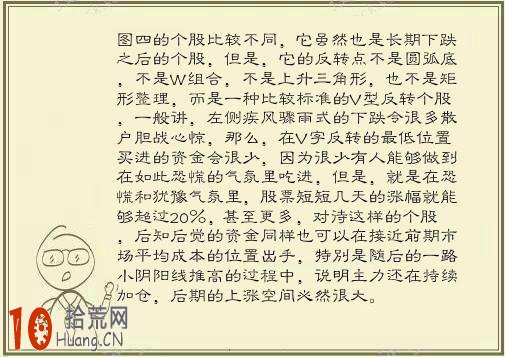 图四的个股比较不同，它虽然也是长期下跌
之后的个股，但是，它的反转点不是圆弧底
，不是W组合，不是上升三角形，也不是矩
形整理，而是一种比较标准的V型反转个股
，一般讲，左侧疾风骤雨式的下跌令很多散
户胆战心惊，那么，在V字反转的最低位置
买进的资金会很少，因为很少有人能够做到
在如此恐慌的气氛里吃进，但是，就是在恐
慌和犹豫气氛里，股票短短几天的涨幅就能
够超过20%，甚至更多，对待这样的个股
，后知后觉的资金同样也可以在接近前期市
场平均成本的位置出手，特别是随后的一路
小阴阳线推高的过程中，说明主力还在持续
加仓，后期的上涨空间必然很大。
10 拾荒网
Huang.CN